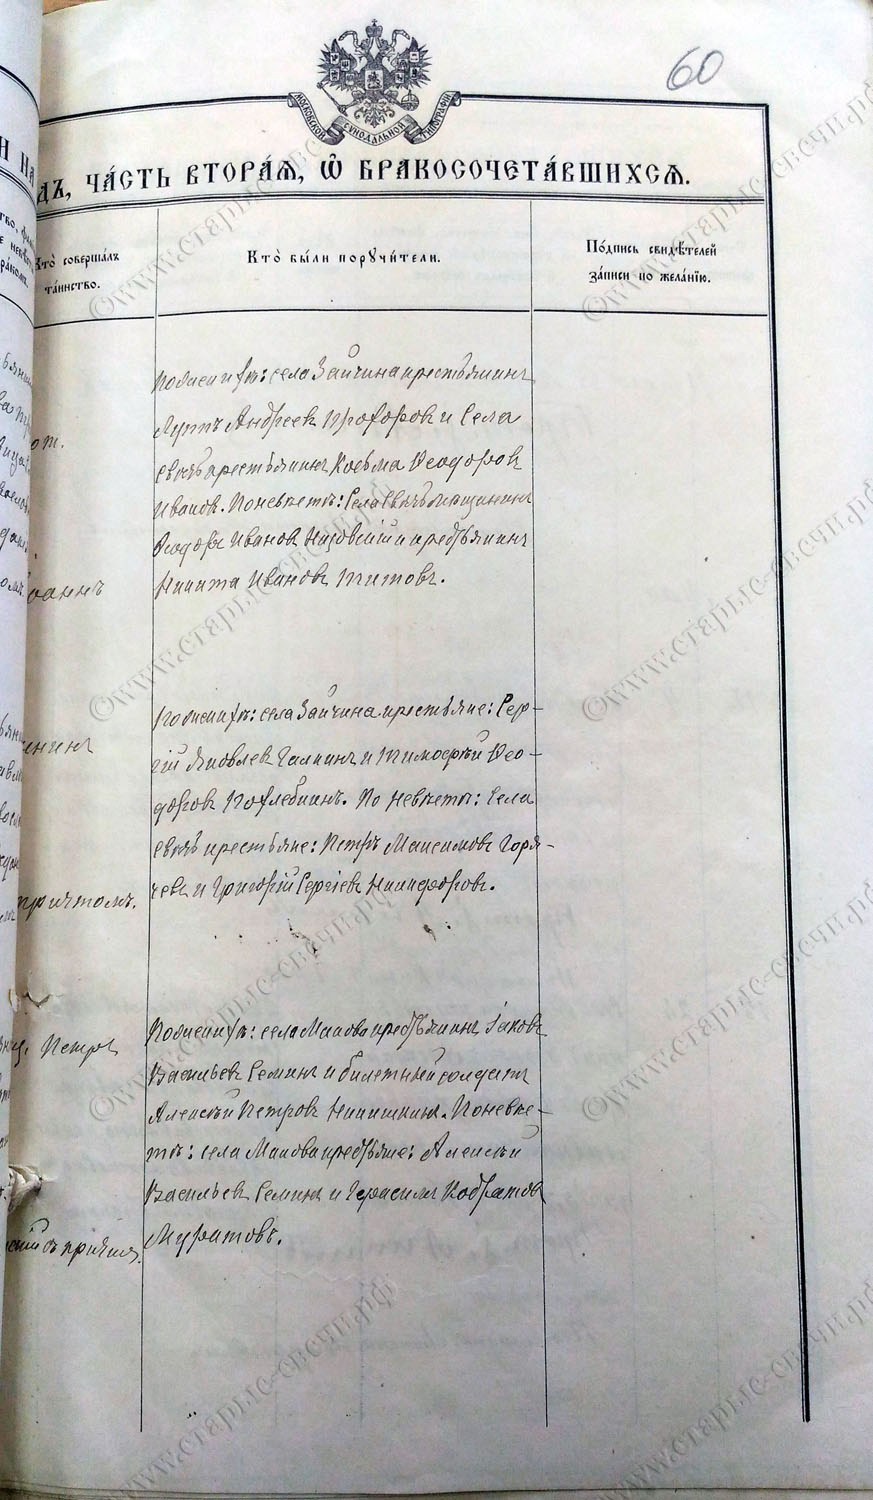 60
МОСКОВСКОЙ СѴНОДАЛЬНОЙ ТИПОГРАФІИ
Н НА
ДЪ, ЧА́СТЬ ВТОРА́Я, Ѡ҆ БРАКОСОЧЕТА́ВШИХСЯ.
Кто̀ соверша́лъ
та́инство.
Кто̀ бы́ли поручи́тели.
По́дпись свидѣ́телей
за́писи по жела́нїю.
По женихѣ: села Зайчина крестьянинъ
Андреев Прохоров и села
крестьянинъ Косьма Ѳеодоров
Иванов. По невѣстѣ: села мѣщанинъ
Ѳеодоръ Иванов Низовскій и крестьянинъ
Никита Ивановъ Титовъ.
оаннъ
По женихѣ: села Зайчина крестьяне: Сер-
гій Яковлев Галкинъ и Тимоѳей Ѳео-
доров Похлебкинъ. По невѣстѣ: села
крестьяне: Петръ Максимовъ Горя-
чевъ и Григорій Сергіев Никифоровъ.
причтомъ.
По женихѣ: села Макова крестьянинъ Іаковъ
Васильев Семинъ и билетный солдатъ
Алексѣй Петровъ Никишкинъ. По невѣс-
тѣ: села Макова крестьяне: Алексѣй
Васильев Семинъ и Герасимъ Кодратов
Муратовъ.
Петръ
©www.старые-свечи.рф